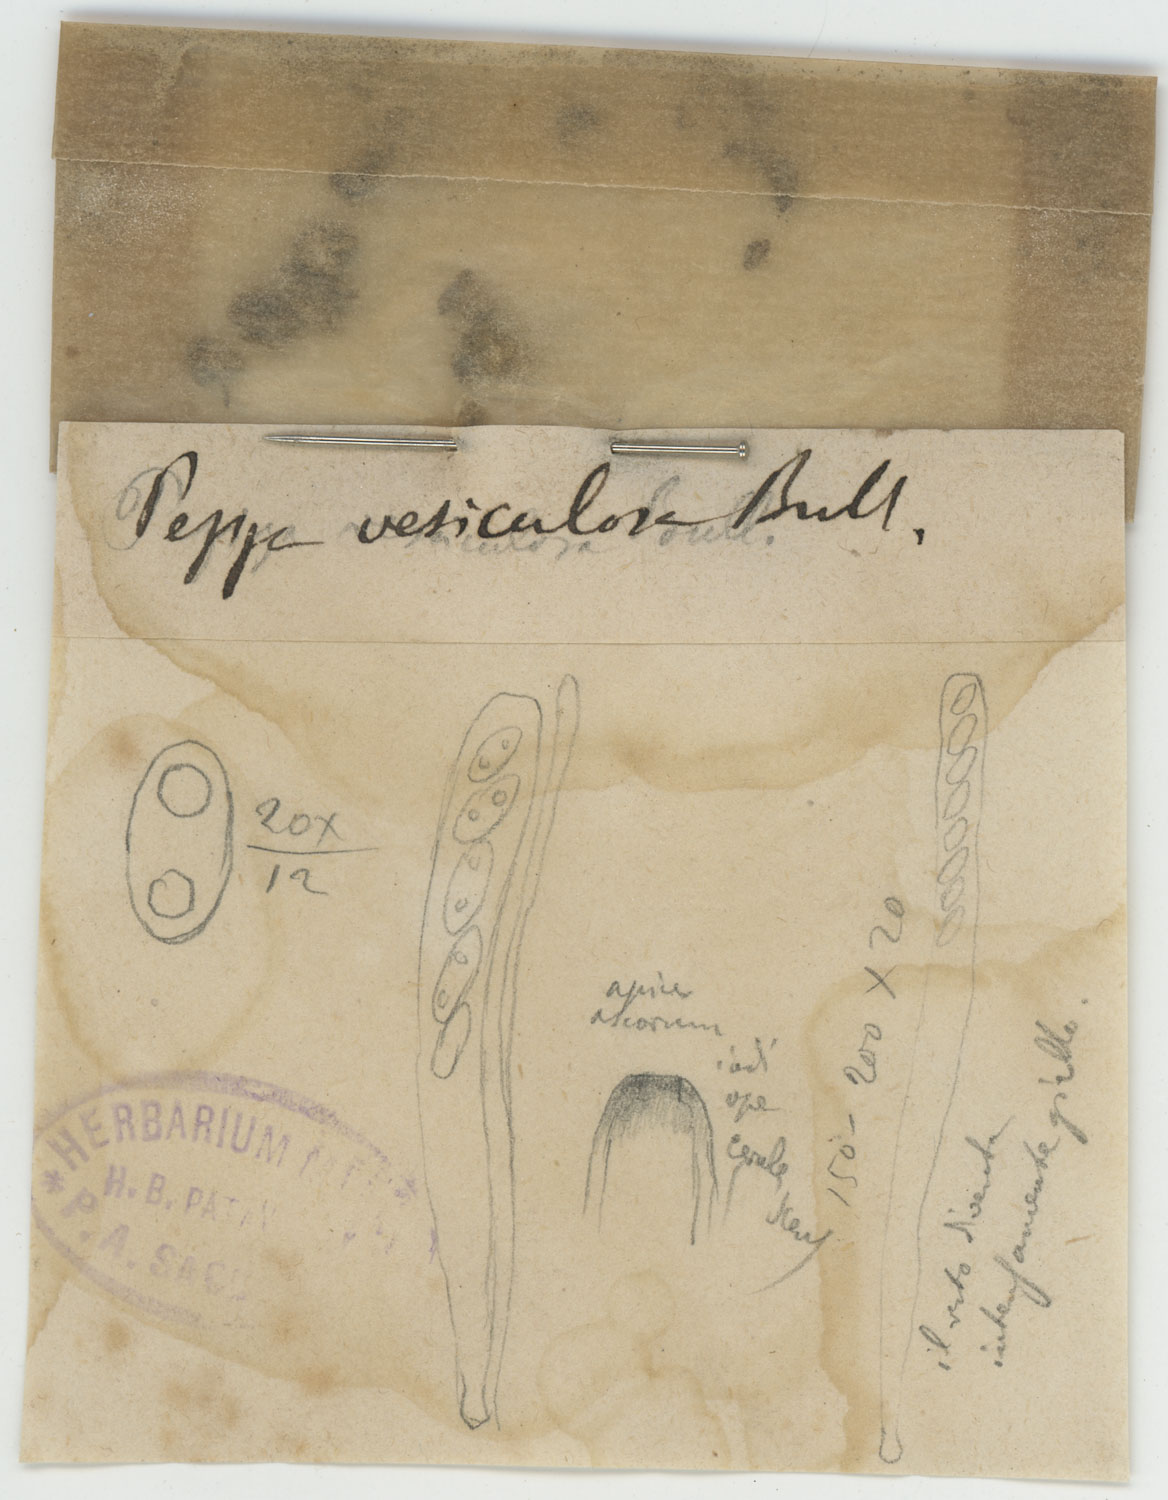 Peppa vesiculosa Bull.
20x
12
apice
ascorum
iodi
ope
cerule
scens
150-200 x 20
il resto diventa
intensamente giallo.
HERBARIUM
H. B. PATAV
P. A. SACC